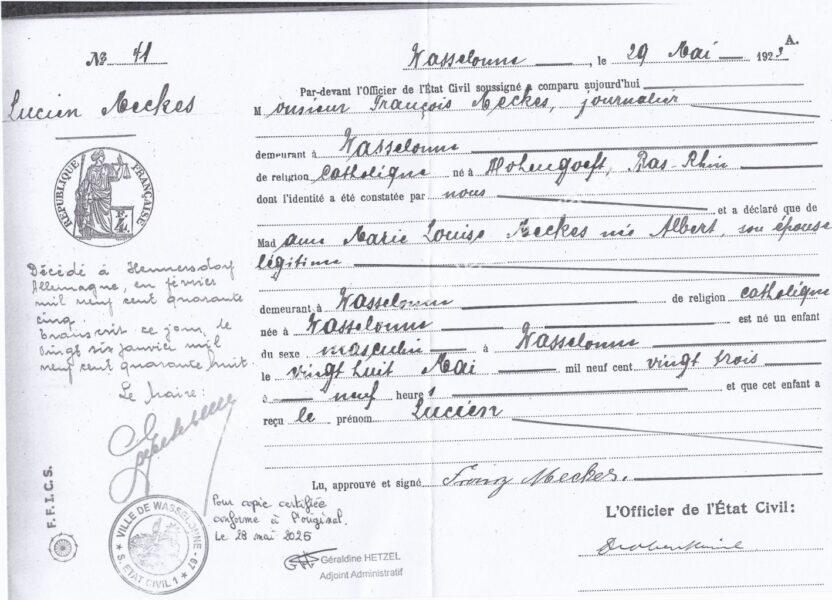 A.
№ 41
Wasselonne, le 29 Mai 1923
Par-devant l'Officier de l'État Civil soussigné a comparu aujourd'hui
Lucien Meckes
Monsieur François Meckes, journalier
demeurant à Wasselonne
de religion catholique né à Hohengoeft, Bas-Rhin
dont l'identité a été constatée par nous
et a déclaré que de
Madame Marie Louise Meckes née Albert, son épouse
légitime
demeurant à Wasselonne de religion catholique
née à Wasselonne est né un enfant
du sexe masculin à Wasselonne
le vingt huit Mai mil neuf cent vingt trois
à neuf heures et que cet enfant a
reçu le prénom Lucien
Lu, approuvé et signé Franz Meckes.
L'Officier de l'État Civil:
RÉPUBLIQUE FRANÇAISE
Décédé à Hennersdorf
Allemagne, en février
mil neuf cent quarante
cinq.
Transcrit ce jour, le
vingt six janvier mil
neuf cent quarante huit.
Le Maire:
F.F.I.C.S.
VILLE DE WASSELONNE
S. ETAT CIVIL 1 67
Pour copie certifiée
conforme à l'original.
Le 28 mai 2025
Géraldine HETZEL
Adjoint Administratif